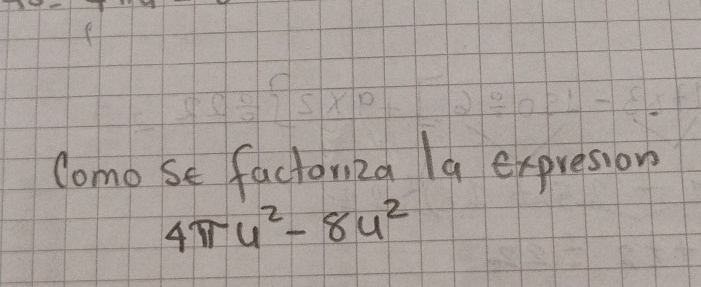 Como se factoriza la expresion
4πu² - 8u²